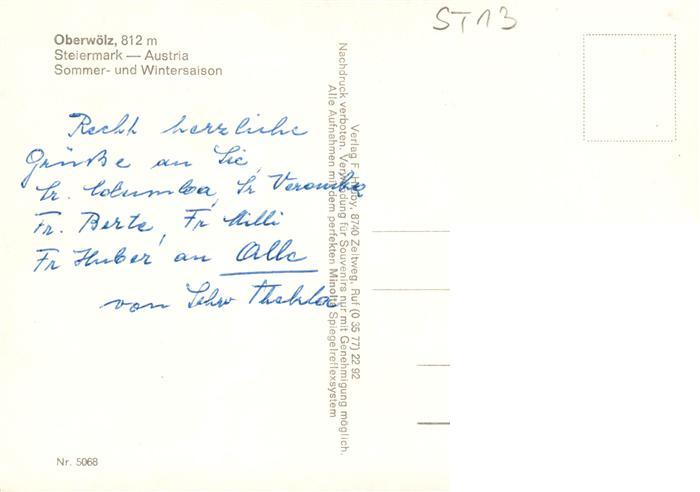 ST 13
Oberwölz, 812 m
Steiermark — Austria
Sommer- und Wintersaison
Recht herzliche
Grüße an Sie,
Sr. Columba, Sr Veronika
Fr. Berta, Fr Milli
Fr Huber an Alle
von Schw Thekla
Verlag F. 8740 Zeltweg, Ruf (0 35 77) 22 92
Nachdruck verboten. Verwendung für Souvenirs nur mit Genehmigung möglich.
Alle Aufnahmen mit dem perfekten Minolta Spiegelreflexsystem
Nr. 5068